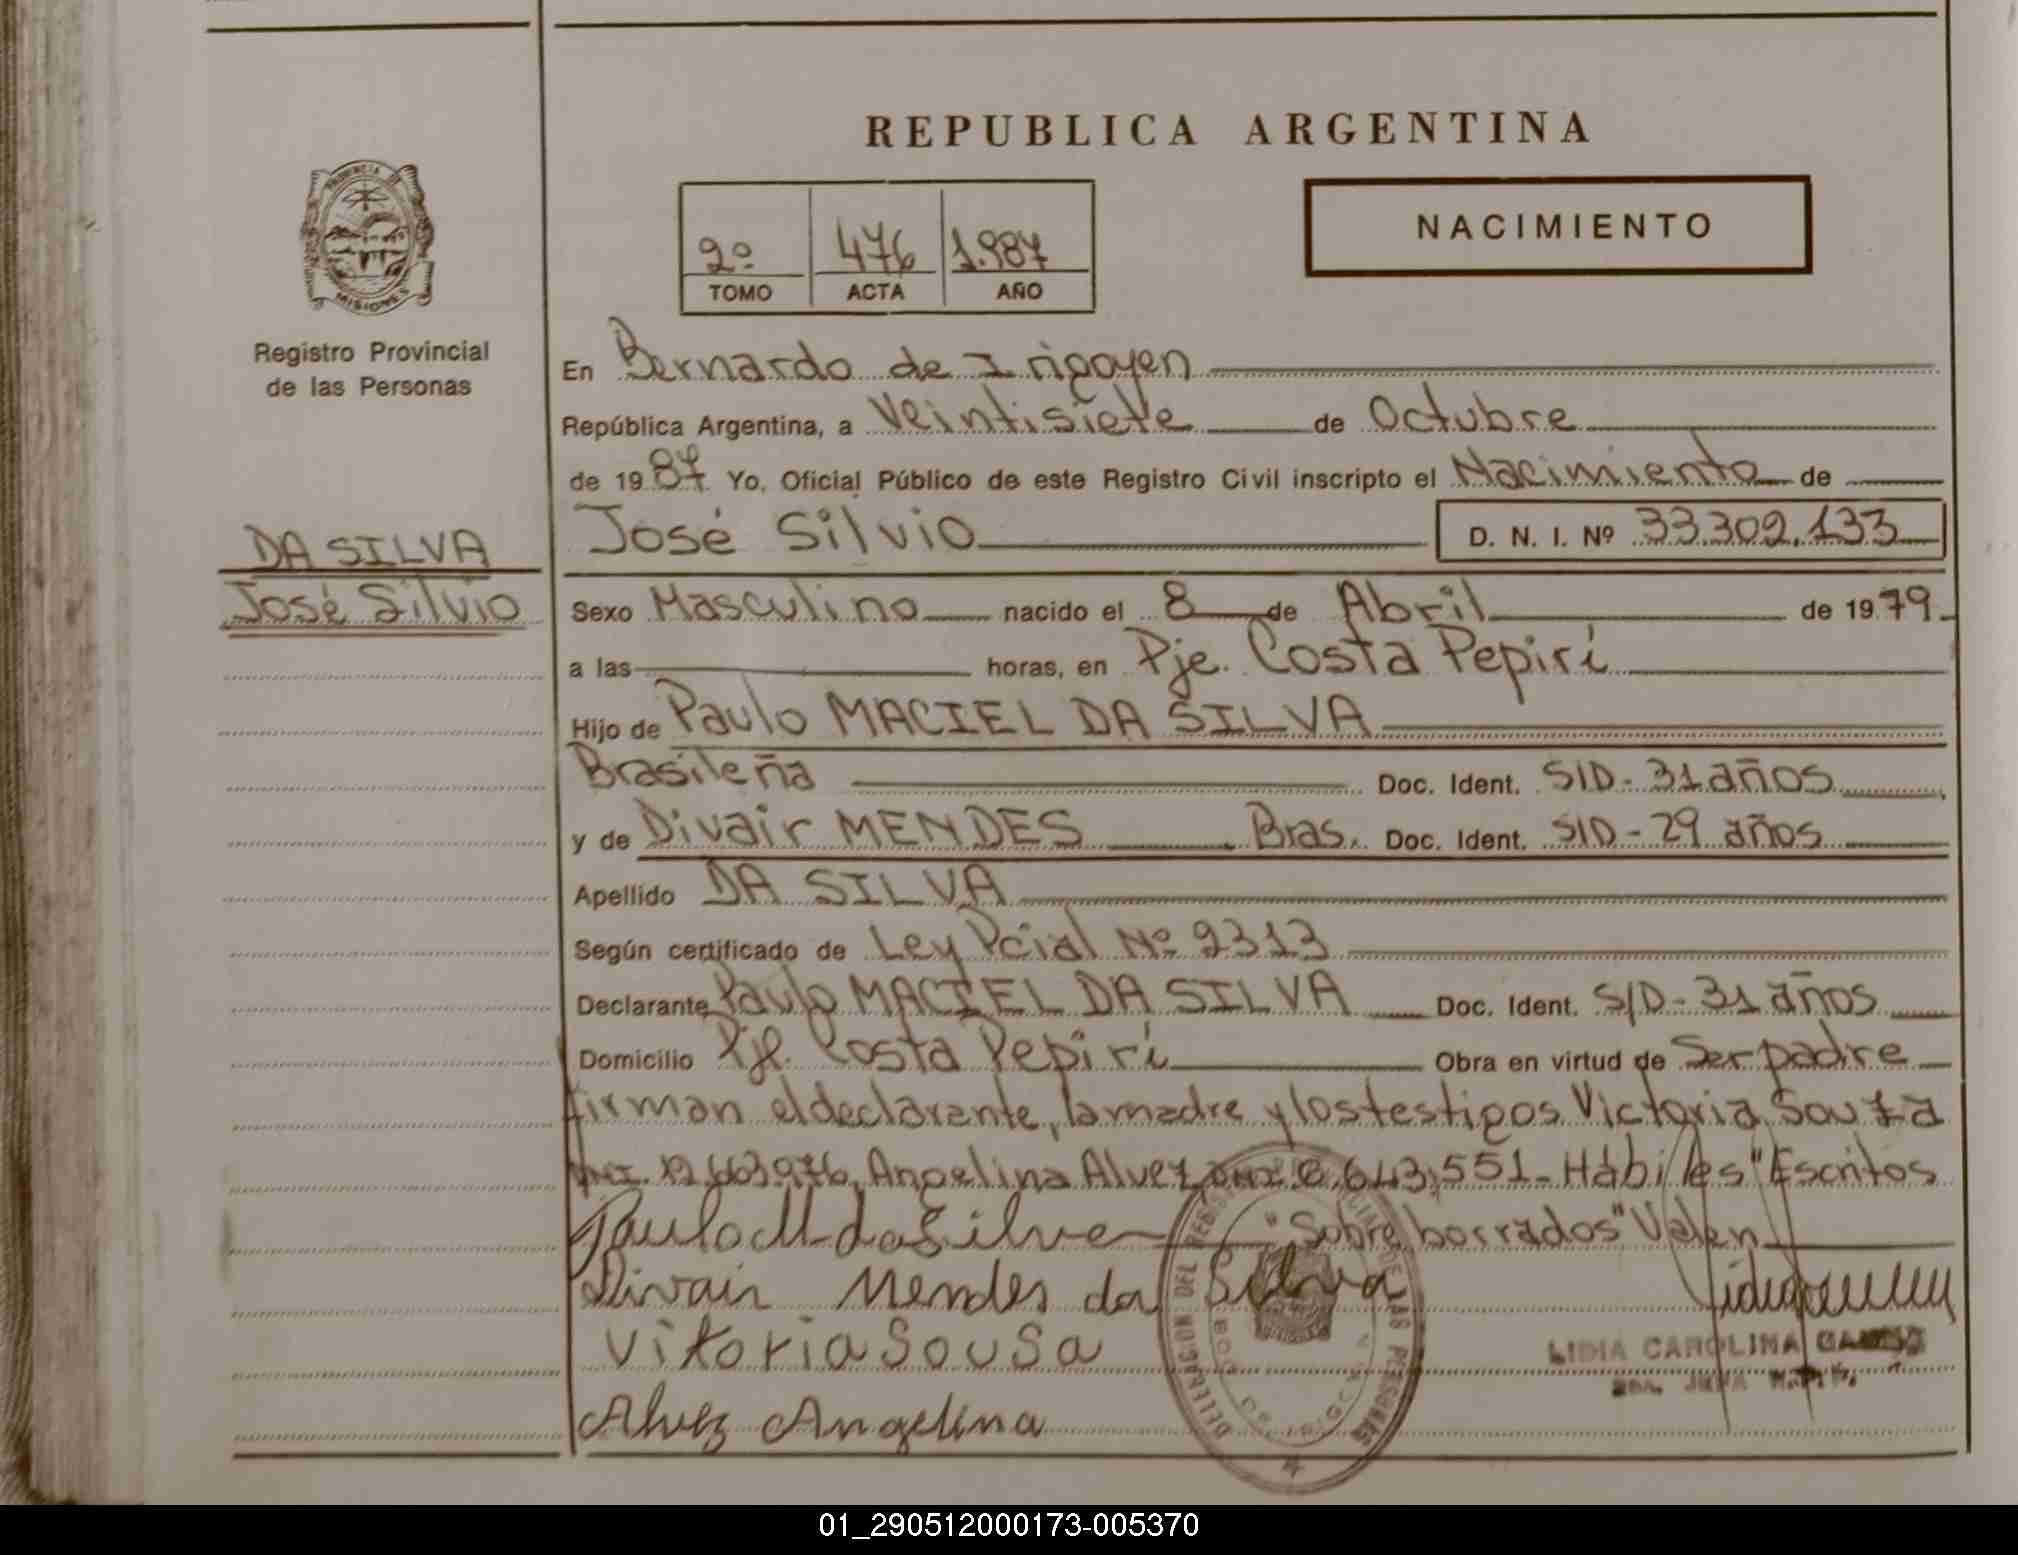 REPUBLICA ARGENTINA
PROVINCIA DE
MISIONES
Registro Provincial
de las Personas
2º 476 1.987
TOMO ACTA AÑO
NACIMIENTO
En Bernardo de Irigoyen
República Argentina, a Veintisiete de Octubre
de 1987 Yo, Oficial Público de este Registro Civil inscripto el Nacimiento de
DA SILVA
José Silvio
José Silvio D. N. I. Nº 33.302.133
Sexo Masculino nacido el 8 de Abril de 1979
a las horas, en Pje. Costa Pepirí
Hijo de Paulo MACIEL DA SILVA
Brasileña Doc. Ident. S/D - 31 años
y de Divair MENDES Bras. Doc. Ident. S/D - 29 años
Apellido DA SILVA
Según certificado de Ley Pcial Nº 2313
Declarante Paulo MACIEL DA SILVA Doc. Ident. S/D - 31 años
Domicilio Pje. Costa Pepirí Obra en virtud de Ser padre
firman el declarante, la madre y los testigos Victoria Souza
Angelina Alvez 6.643.551 - Hábiles "Escritos
Sobre borrados" Valen
Paulo M da Silva
Divair Mendes da Silva
Vitoria SouSa
Alvez Angelina
LIDIA CAROLINA
DELEGACION DEL REGISTRO PROVINCIAL DE LAS PERSONAS
01_290512000173-005370